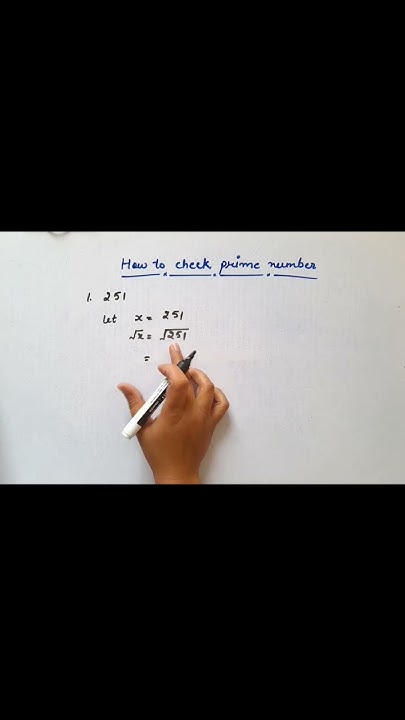 How to check prime number
1. 251
let x = 251
√x = √251
=